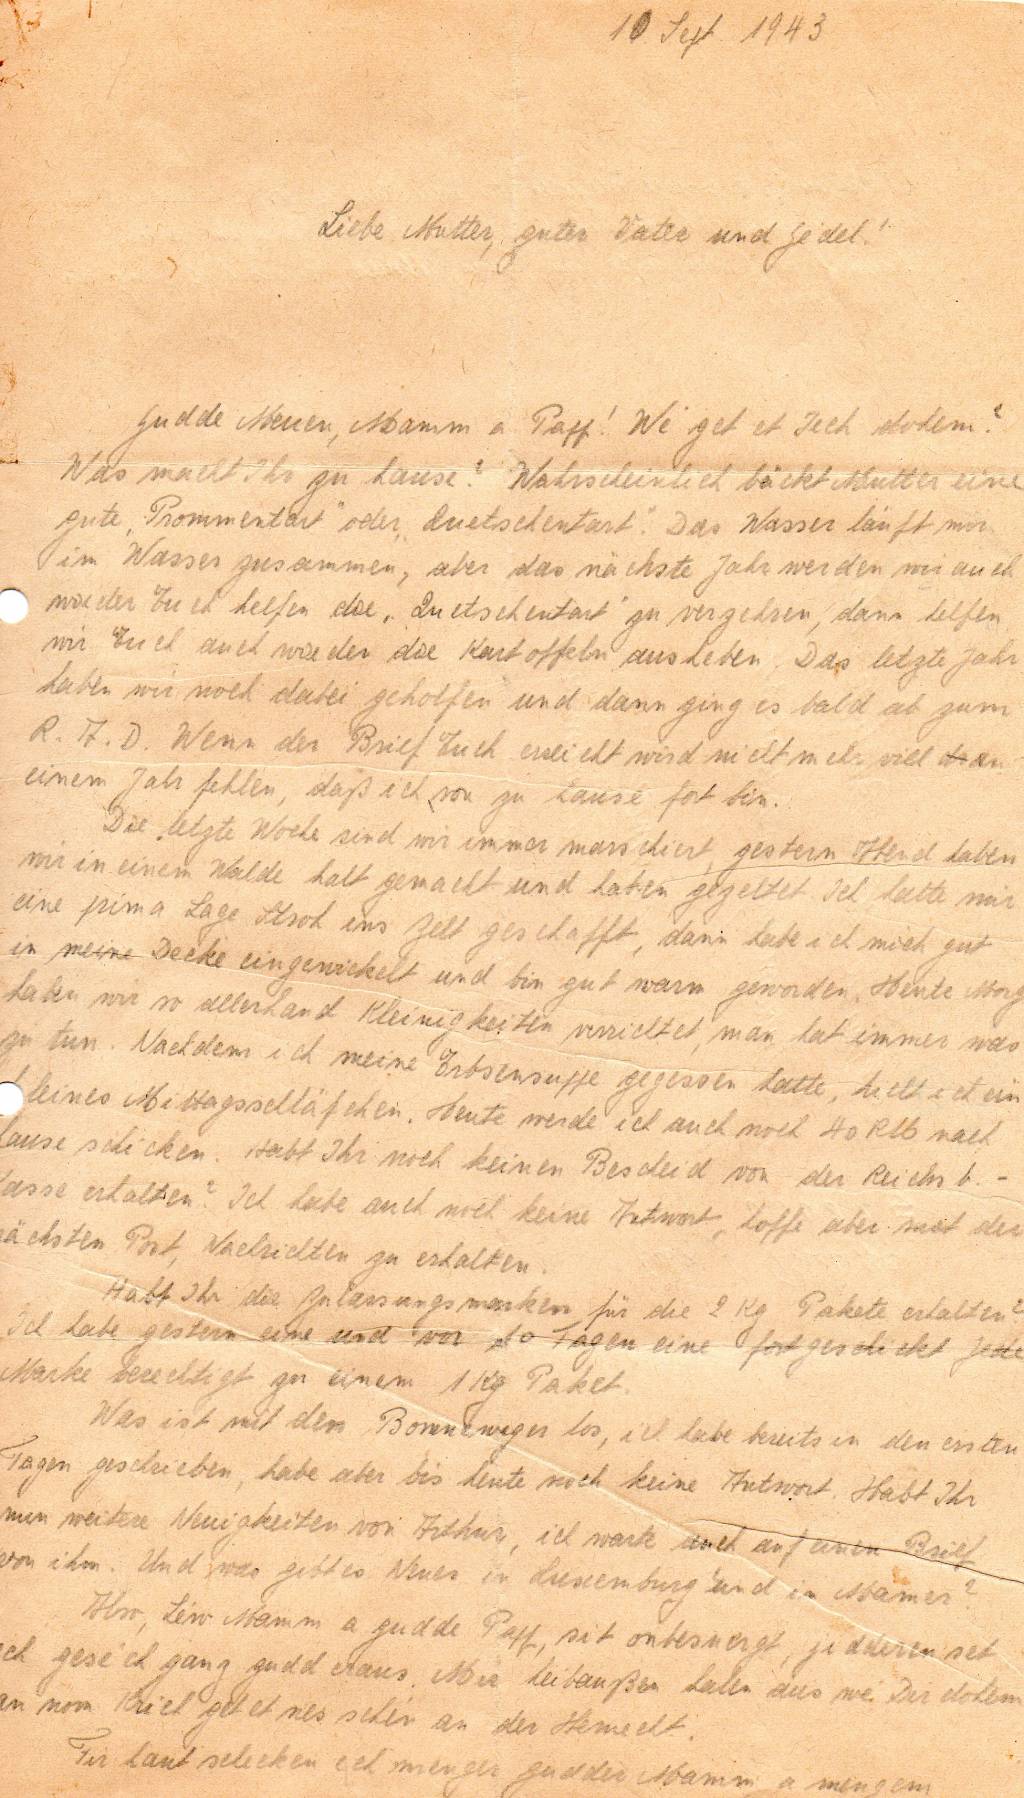 10 Sept 1943
Liebe Mutter, guter Vater und Jedel!
Gudde Meuen, Mamm a Papp! We get et Iech dohem?
Was macht Ihr zu hause? Wahrscheinlich bäckt Mutter eine
gute „Prommentart" oder „Quetschentart". Das Wasser läuft mir
im Wasser zusammen, aber das nächste Jahr werden wir auch
wieder Euch helfen die „Quetschentart" zu verzehren, dann helfen
wir Euch auch wieder die Kartoffeln ausheben. Das letzte Jahr
haben wir noch dabei geholfen und dann ging es bald ab zum
R. A. D. Wenn der Brief Euch erreicht wird nicht mehr viel an
einem Jahr fehlen, daß ich von zu hause fort bin.
Die letzte Woche sind wir immer marschiert, gestern Abend haben
wir in einem Walde halt gemacht und haben gezeltet. Ich hatte mir
eine prima Lage Stroh ins Zelt geschafft, dann habe ich mich gut
in meine Decke eingewickelt und bin gut warm geworden. Heute Morg
haben wir so allerhand Kleinigkeiten verrichtet, man hat immer was
zu tun. Nachdem ich meine Erbsensuppe gegessen hatte, hielt ich ein
kleines Mittagsschläfchen. Heute werde ich auch noch 40 RM nach
hause schicken. Habt Ihr noch keinen Bescheid von der Reichsb.-
kasse erhalten? Ich habe auch noch keine Antwort, hoffe aber mit der
nächsten Post, Nachrichten zu erhalten.
Habt Ihr die Zulassungsmarken für die 2 Kg Pakete erhalten?
Ich habe gestern eine und vor 10 Tagen eine fortgeschickt Jede
Marke berechtigt zu einem 1 Kg Paket.
Was ist mit den los, ich habe bereits in den ersten
Tagen geschrieben, habe aber bis heute noch keine Antwort. Habt Ihr
nun weitere Neuigkeiten von Arthur, ich warte auch auf einen Brief
von ihm. Und was gibt es Neues in Luxemburg und in Mamer?
Also, Léiw Mamm a gudde Papp, sit onbesuergt, jidderen set
ech gesé ch gang gudd eraus. Mir halen aus we Dir dohem
an nom Krich get et nes schén an der Hemecht.
Fir haut schecken ech menger gudder Mamm a mengem